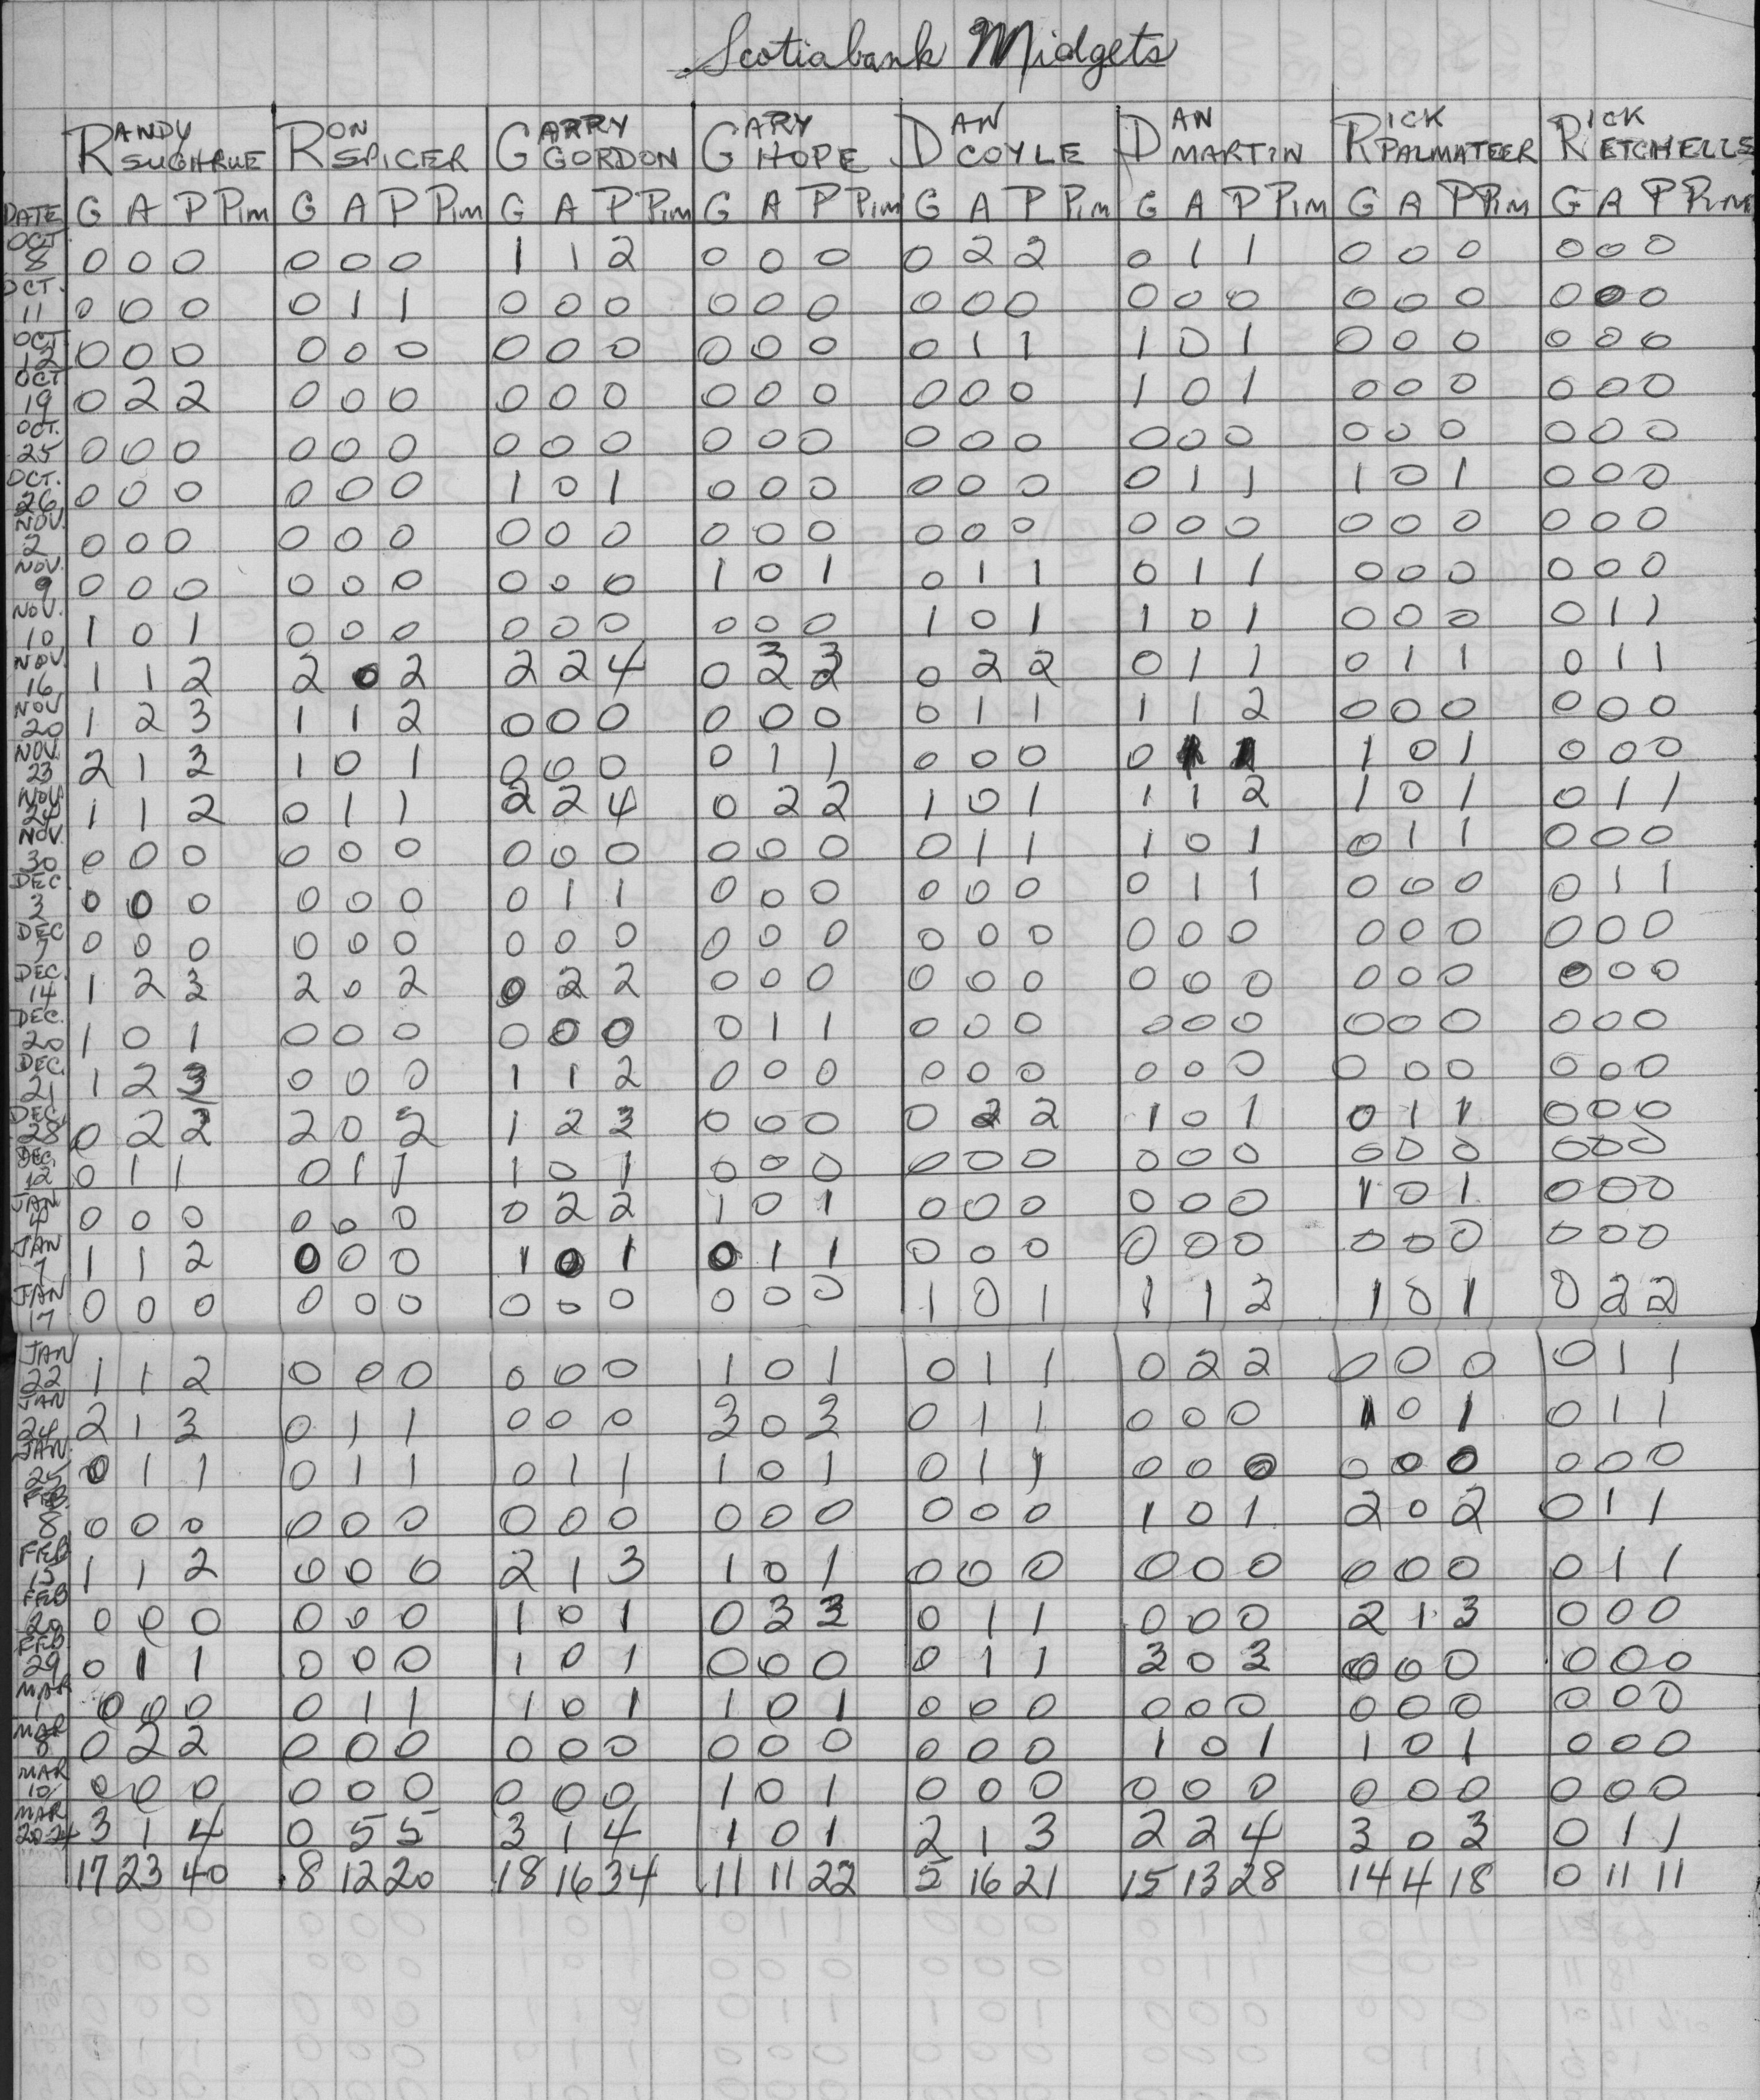 Scotiabank Midgets
RANDY SUGHRUE RON SPICER GARRY GORDON GARY HOPE DAN COYLE DAN MARTIN RICK PALMATEER RICK ETCHELLS
DATE G A P Pim G A P Pim G A P Pim G A P Pim G A P Pim G A P Pim G A P Pim G A P Pim
OCT 8 0 0 0 0 0 0 1 1 2 0 0 0 0 2 2 0 1 1 0 0 0 0 0 0
OCT. 11 0 0 0 0 1 1 0 0 0 0 0 0 0 0 0 0 0 0 0 0 0 0 0 0
OCT 12 0 0 0 0 0 0 0 0 0 0 0 0 0 1 1 1 0 1 0 0 0 0 0 0
OCT 19 0 2 2 0 0 0 0 0 0 0 0 0 0 0 0 1 0 1 0 0 0 0 0 0
OCT. 25 0 0 0 0 0 0 0 0 0 0 0 0 0 0 0 0 0 0 0 0 0 0 0 0
OCT. 26 0 0 0 0 0 0 1 0 1 0 0 0 0 0 0 0 1 1 1 0 1 0 0 0
NOV. 2 0 0 0 0 0 0 0 0 0 0 0 0 0 0 0 0 0 0 0 0 0 0 0 0
NOV. 9 0 0 0 0 0 0 0 0 0 1 0 1 0 1 1 0 1 1 0 0 0 0 0 0
NOV. 10 1 0 1 0 0 0 0 0 0 0 0 0 1 0 1 1 0 1 0 0 0 0 1 1
NOV. 16 1 1 2 2 0 2 2 2 4 0 3 3 0 2 2 0 1 1 0 1 1 0 1 1
NOV 20 1 2 3 1 1 2 0 0 0 0 0 0 0 1 1 1 1 2 0 0 0 0 0 0
NOV. 23 2 1 3 1 0 1 0 0 0 0 1 1 0 0 0 0 1 1 1 0 1 0 0 0
NOV 24 1 1 2 0 1 1 2 2 4 0 2 2 1 0 1 1 1 2 1 0 1 0 1 1
NOV. 30 0 0 0 0 0 0 0 0 0 0 0 0 0 1 1 1 0 1 0 1 1 0 0 0
DEC 3 0 0 0 0 0 0 0 1 1 0 0 0 0 0 0 0 1 1 0 0 0 0 1 1
DEC 7 0 0 0 0 0 0 0 0 0 0 0 0 0 0 0 0 0 0 0 0 0 0 0 0
DEC. 14 1 2 3 2 0 2 0 2 2 0 0 0 0 0 0 0 0 0 0 0 0 0 0 0
DEC. 20 1 0 1 0 0 0 0 0 0 0 1 1 0 0 0 0 0 0 0 0 0 0 0 0
DEC. 21 1 2 3 0 0 0 1 1 2 0 0 0 0 0 0 0 0 0 0 0 0 0 0 0
DEC. 28 0 2 2 2 0 2 1 2 3 0 0 0 0 2 2 1 0 1 0 1 1 0 0 0
DEC. 12 0 1 1 0 1 1 1 0 1 0 0 0 0 0 0 0 0 0 0 0 0 0 0 0
JAN 4 0 0 0 0 0 0 0 2 2 1 0 1 0 0 0 0 0 0 1 0 1 0 0 0
JAN 7 1 1 2 0 0 0 1 0 1 0 1 1 0 0 0 0 0 0 0 0 0 0 0 0
JAN 17 0 0 0 0 0 0 0 0 0 0 0 0 1 0 1 1 1 2 1 0 1 0 2 2
JAN 22 1 1 2 0 0 0 0 0 0 1 0 1 0 1 1 0 2 2 0 0 0 0 1 1
JAN 24 2 1 3 0 1 1 0 0 0 3 0 3 0 1 1 0 0 0 1 0 1 0 1 1
JAN. 25 0 1 1 0 1 1 0 1 1 1 0 1 0 1 1 0 0 0 0 0 0 0 0 0
FEB. 8 0 0 0 0 0 0 0 0 0 0 0 0 0 0 0 1 0 1 2 0 2 0 1 1
FEB 15 1 1 2 0 0 0 2 1 3 1 0 1 0 0 0 0 0 0 0 0 0 0 1 1
FEB 20 0 0 0 0 0 0 1 0 1 0 3 3 0 1 1 0 0 0 2 1 3 0 0 0
FEB. 29 0 1 1 0 0 0 1 0 1 0 0 0 0 1 1 3 0 3 0 0 0 0 0 0
MAR 1 0 0 0 0 1 1 1 0 1 1 0 1 0 0 0 0 0 0 0 0 0 0 0 0
MAR 8 0 2 2 0 0 0 0 0 0 0 0 0 0 0 0 1 0 1 1 0 1 0 0 0
MAR 10 0 0 0 0 0 0 0 0 0 1 0 1 0 0 0 0 0 0 0 0 0 0 0 0
MAR 20-24 3 1 4 0 5 5 3 1 4 1 0 1 2 1 3 2 2 4 3 0 3 0 1 1
17 23 40 8 12 20 18 16 34 11 11 22 5 16 21 15 13 28 14 4 18 0 11 11